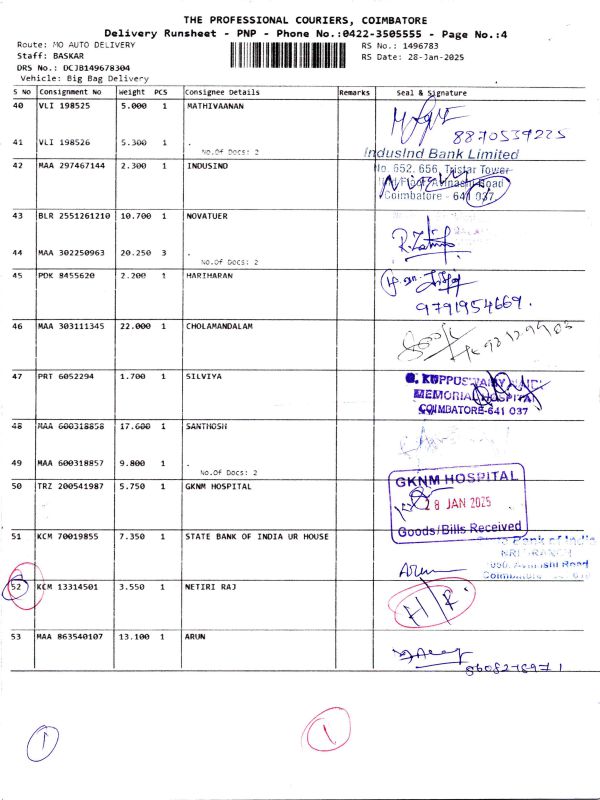 THE PROFESSIONAL COURIERS, COIMBATORE
Delivery Runsheet - PNP - Phone No.:0422-3505555 - Page No.:4
Route: MO AUTO DELIVERY RS No.: 1496783
Staff: BASKAR RS Date: 28-Jan-2025
DRS No.: DCJB149678304
Vehicle: Big Bag Delivery
S No Consignment No Weight PCS Consignee Details Remarks Seal & Signature
40 VLI 198525 5.000 1 MATHIVAANAN
8870539225
41 VLI 198526 5.300 1 .
No.Of Docs: 2
IndusInd Bank Limited
42 MAA 297467144 2.300 1 INDUSIND No. 652, 656, Tristar Tower
Avinashi Road
Coimbatore - 641 037.
43 BLR 2551261210 10.700 1 NOVATUER
44 MAA 302250963 20.250 3 .
No.Of Docs: 2
45 PDK 8455620 2.200 1 HARIHARAN
9791954669.
46 MAA 303111345 22.000 1 CHOLAMANDALAM
47 PRT 6052294 1.700 1 SILVIYA
G. KUPPUSWAMY NAIDU
MEMORIAL HOSPITAL
COIMBATORE-641 037
48 MAA 600318858 17.600 1 SANTHOSH
49 MAA 600318857 9.800 1 .
No.Of Docs: 2
50 TRZ 200541987 5.750 1 GKNM HOSPITAL
GKNM HOSPITAL
28 JAN 2025
Goods/Bills Received
51 KCM 70019855 7.350 1 STATE BANK OF INDIA UR HOUSE
State Bank of India
NRI BRANCH
Avinashi Road
Coimbatore
Arun
52 KCM 13314501 3.550 1 NETIRI RAJ
H/R.
53 MAA 863540107 13.100 1 ARUN
1
1